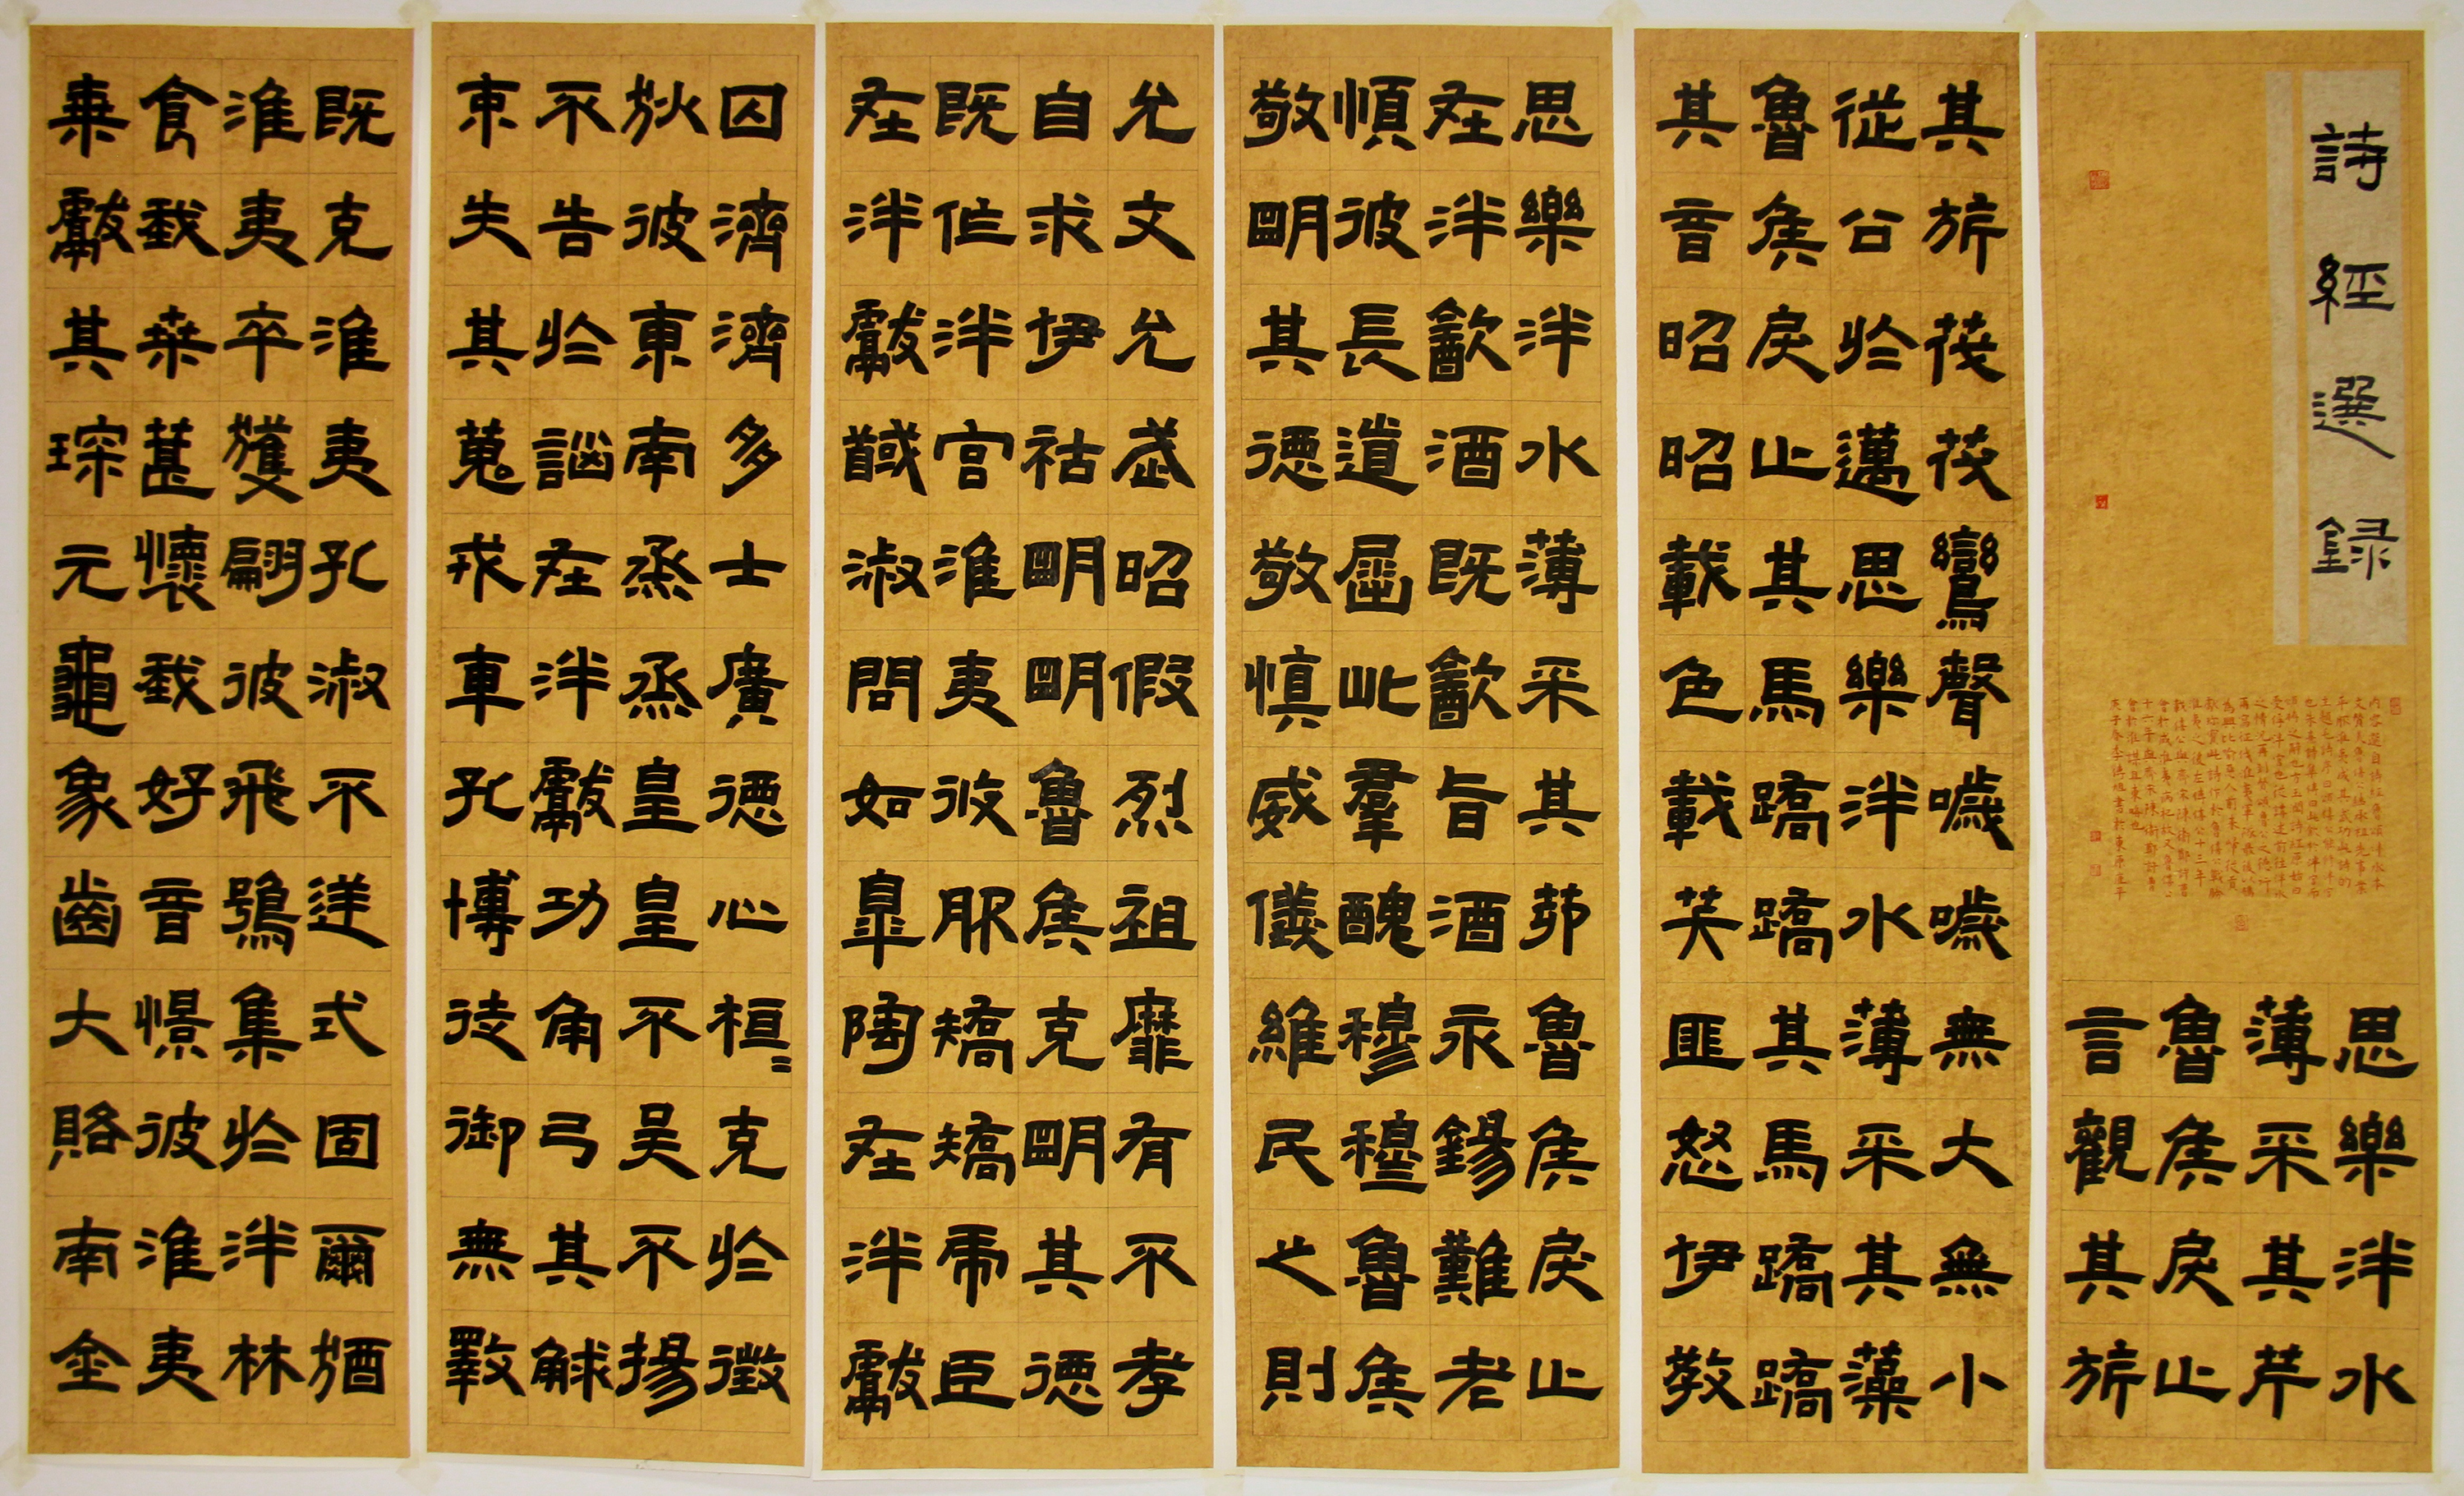 詩經選録
思樂泮水
薄采其芹
魯侯戾止
言觀其旂
其旂茷茷鸞聲噦噦無大無小
從公於邁思樂泮水薄采其藻
魯侯戾止其馬蹻蹻其馬蹻蹻
其音昭昭載色載笑匪怒伊教
思樂泮水薄采其茆魯侯戾止
在泮飲酒既飲旨酒永錫難老
順彼長道屈此羣醜穆穆魯侯
敬明其德敬慎威儀維民之則
允文允武昭假烈祖靡有不孝
自求伊祜明明魯侯克明其德
既作泮宮淮夷攸服矯矯虎臣
在泮獻馘淑問如皋陶在泮獻
囚濟濟多士廣德心桓〻克於徵
狄彼東南烝烝皇皇不吳不揚
不告於訩在泮獻功角弓其觩
束矢其蒐戎車孔博徒御無斁
既克淮夷孔淑不逆式固爾猶
淮夷卒獲翩彼飛鴞集於泮林
食我桑葚懷我好音憬彼淮夷
來獻其琛元龜象齒大賂南金